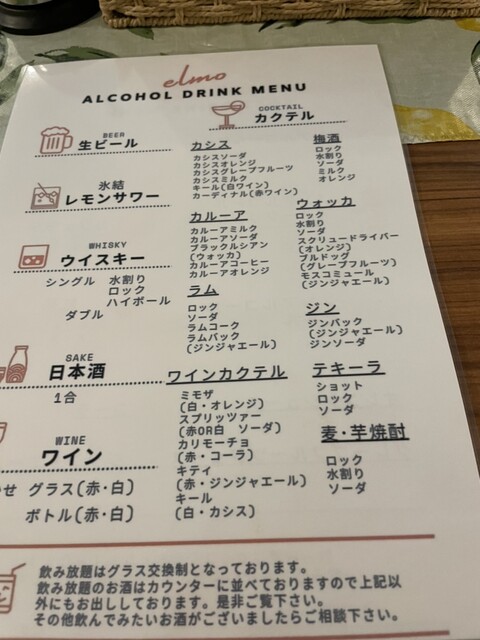 elmo
ALCOHOL DRINK MENU
BEER
生ビール
氷結
レモンサワー
WHISKY
ウイスキー
シングル 水割り
ロック
ハイボール
ダブル
SAKE
日本酒
1合
WINE
ワイン
せ グラス(赤・白)
ボトル(赤・白)
COCKTAIL
カクテル
カシス
カシスソーダ
カシスオレンジ
カシスグレープフルーツ
カシスミルク
キール(白ワイン)
カーディナル(赤ワイン)
カルーア
カルーアミルク
カルーアソーダ
ブラックルシアン
(ウォッカ)
カルーアコーヒー
カルーアオレンジ
ラム
ロック
ソーダ
ラムコーク
ラムバック
(ジンジャエール)
ワインカクテル
ミモザ
(白・オレンジ)
スプリッツァー
(赤OR白 ソーダ)
カリモーチョ
(赤・コーラ)
キティ
(赤・ジンジャエール)
キール
(白・カシス)
梅酒
ロック
水割り
ソーダ
ミルク
オレンジ
ウォッカ
ロック
水割り
ソーダ
スクリュードライバー
(オレンジ)
ブルドッグ
(グレープフルーツ)
モスコミュール
(ジンジャエール)
ジン
ジンバック
(ジンジャエール)
ジンソーダ
テキーラ
ショット
ロック
ソーダ
麦・芋焼酎
ロック
水割り
ソーダ
飲み放題はグラス交換制となっております。
飲み放題のお酒はカウンターに並べておりますので上記以
外にもお出ししております。是非ご覧下さい。
その他飲んでみたいお酒がございましたらご相談下さい。